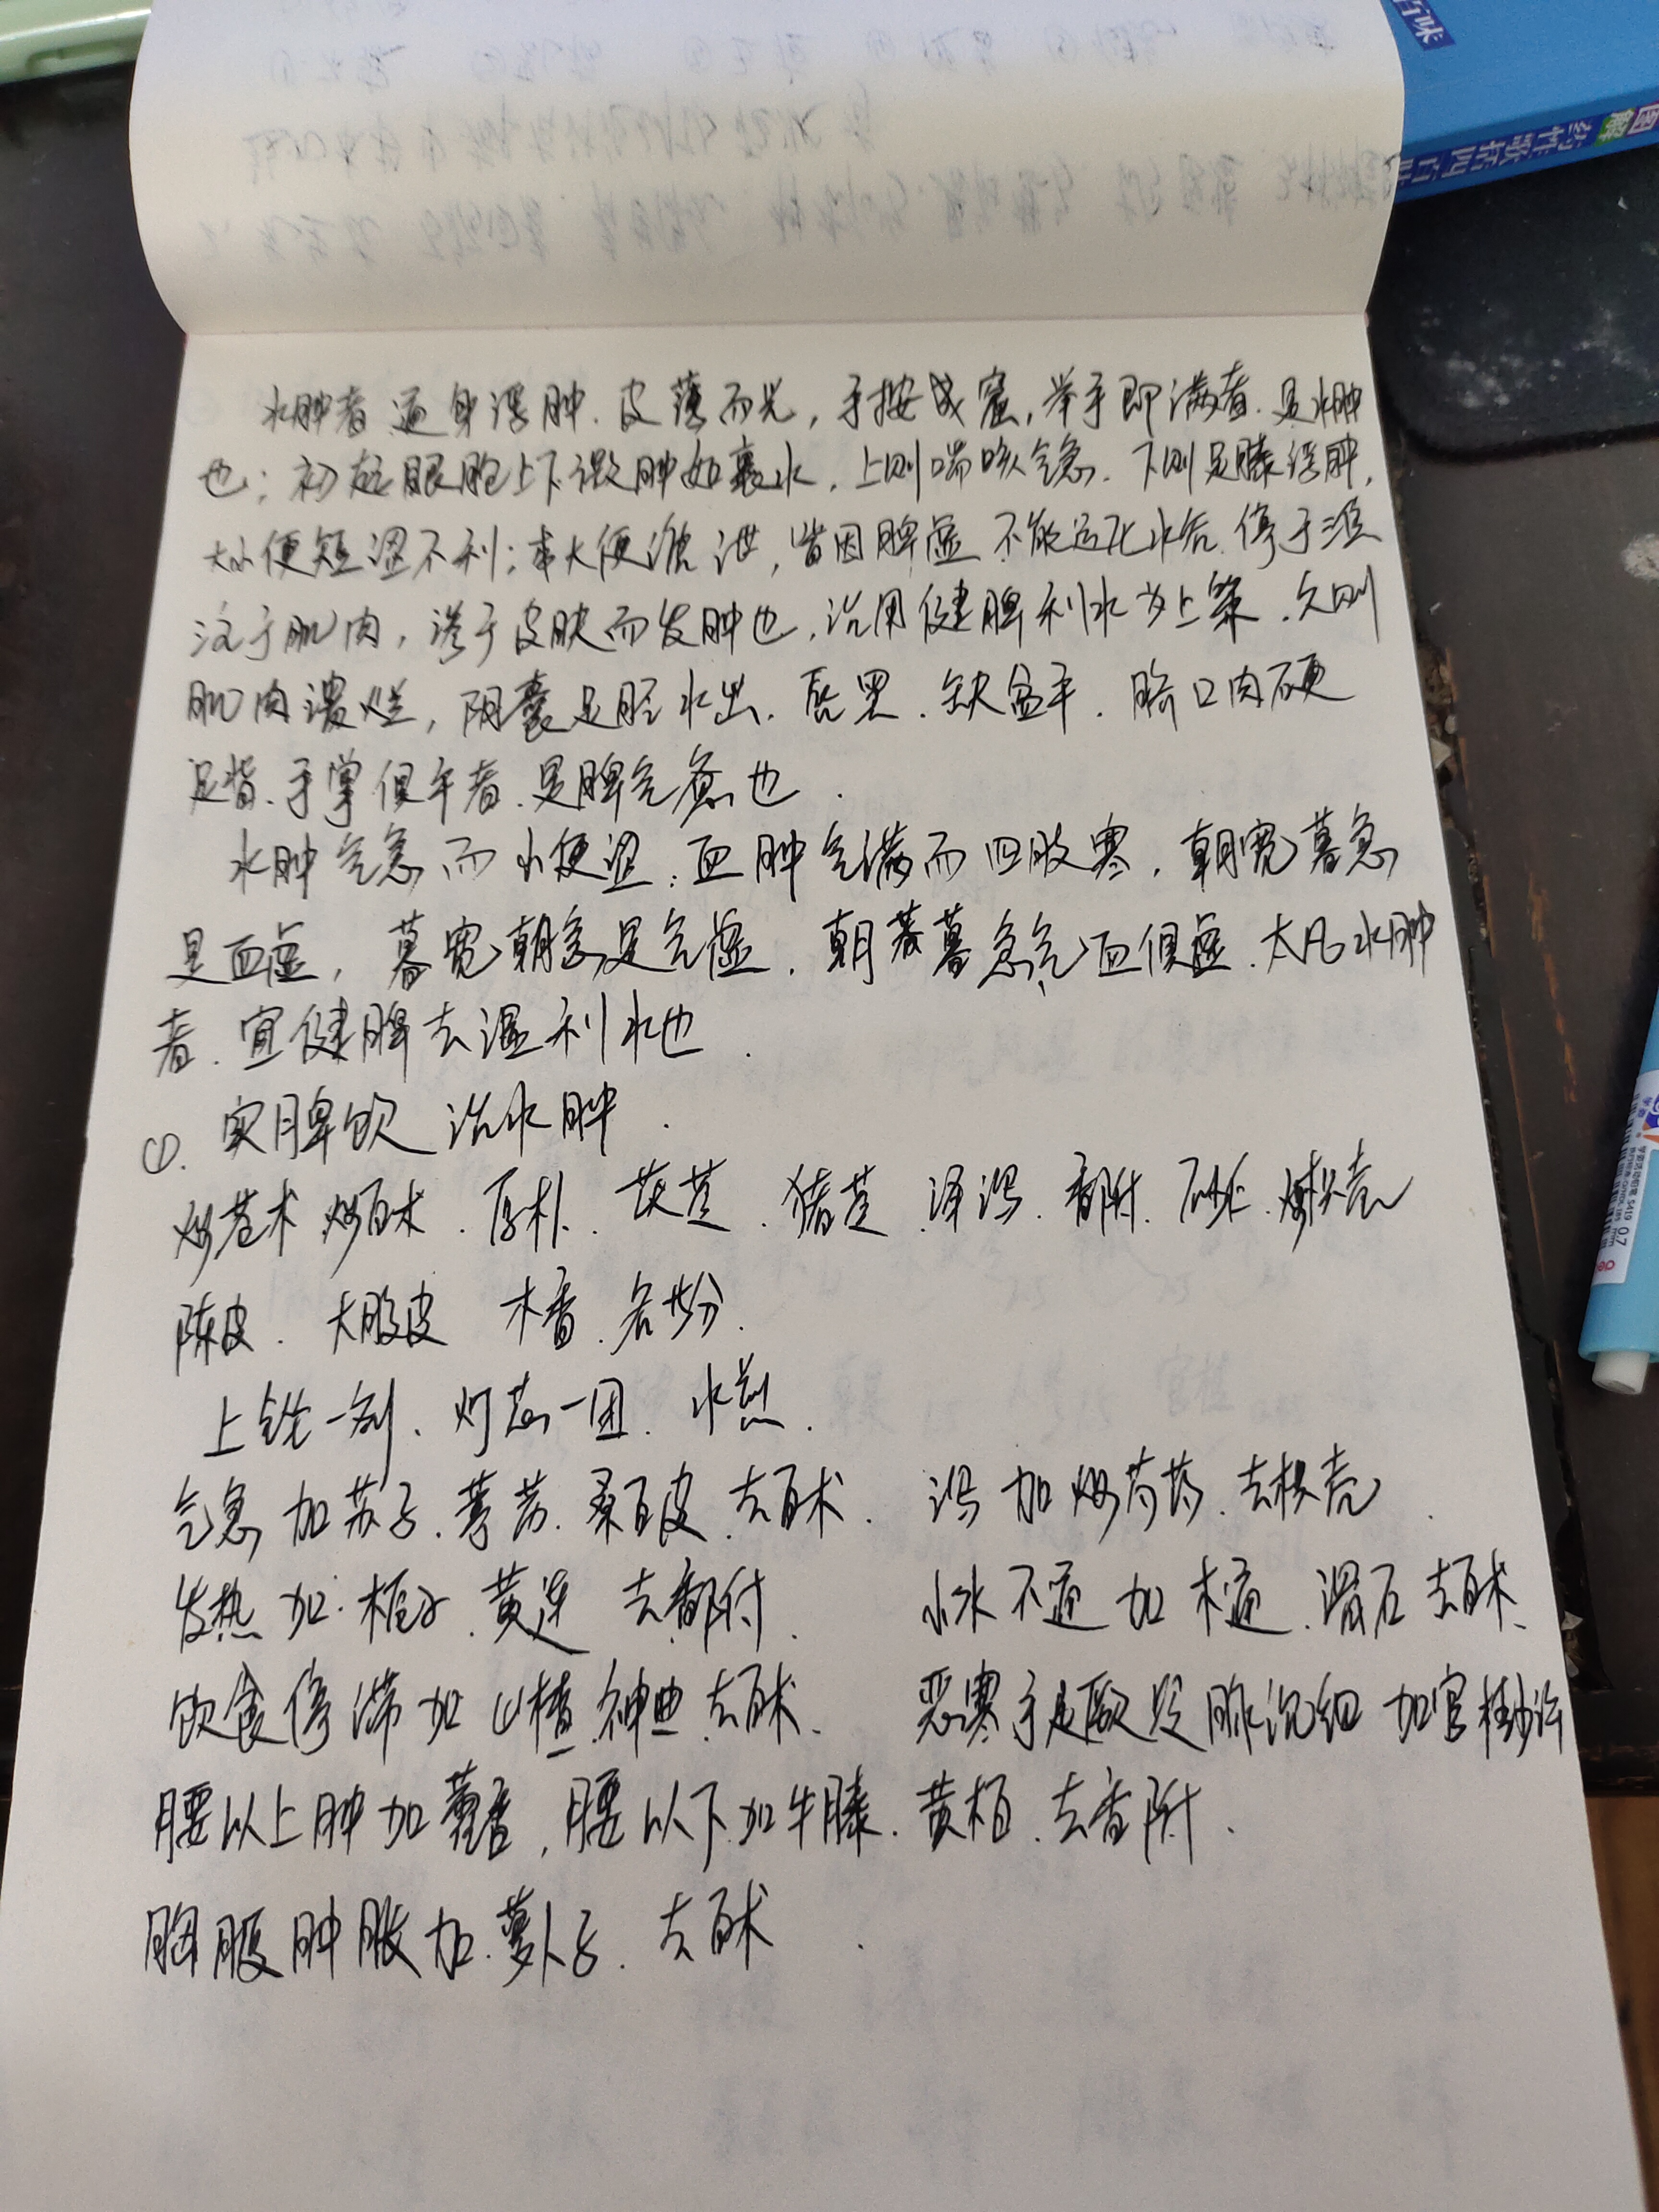 百味
图解药性歌括四百味
水肿者 通身浮肿、皮薄而光，手按成窟，举手即满者、是水肿
也；初起眼胞上下微肿如裹水，上则喘咳气急、下则足膝浮肿，
大小便短涩不利；或大便溏泄，皆因脾虚 不能运化水谷、停于湿
注于肌肉，渗于皮肤而发肿也，治用健脾利水为上策、久则
肌肉溃烂，阴囊足胫水出、唇黑、缺盆平、脐口肉硬
足背、手掌俱平者、是脾气惫也．
水肿气急而小便涩；血肿气满而四肢寒，朝宽暮急
是血虚，暮宽朝急是气虚，朝暮急气血俱虚、大凡水肿
者、宜健脾去湿利水也．
①．实脾饮 治水肿．
炒苍术 炒白术、厚朴、茯苓、猪苓、泽泻、香附、砂仁、炒枳壳
陈皮、大腹皮 木香、各等分、
上锉一剂、灯芯一团、水煎．
气急 加苏子、葶苈、桑白皮、去白术、 泻加炒芍药、去枳壳．
发热加 栀子、黄连 去香附． 小水不通加 木通、滑石 去白术、
饮食停滞加 山楂、神曲 去白术、 恶寒手足厥冷 脉沉细 加官桂少许
腰以上肿加藿香，腰以下加牛膝、黄柏、去香附．
胸腹肿胀加．萝卜子、去白术．